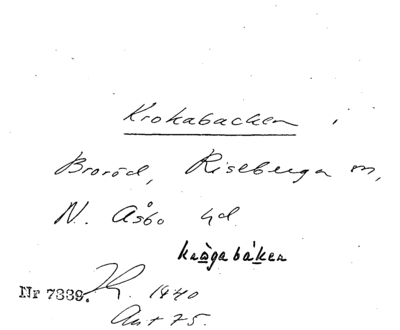 Krokabacken i
Broröd, Riseberga sn,
N. Åsbo hd.
kràgabáken
Nr 7339. 1940
Ant 75.